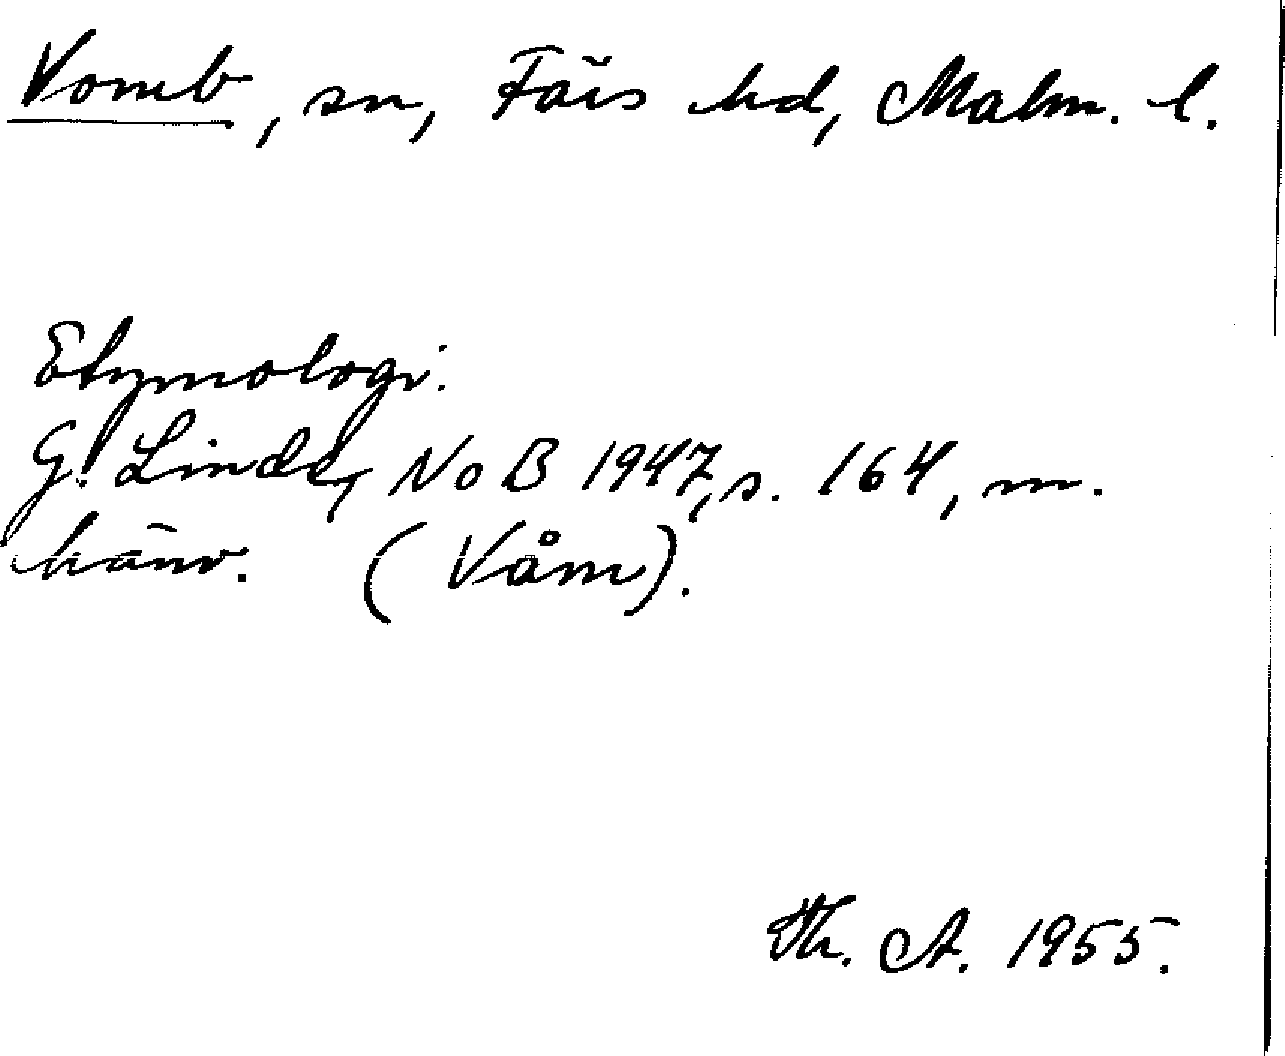 Vomb, sn, Färs hd, Malm. l.
Etymologi.
G. Linde, NoB 1947, s. 164, m.
hänv. (Våm).
Th. A. 1955.